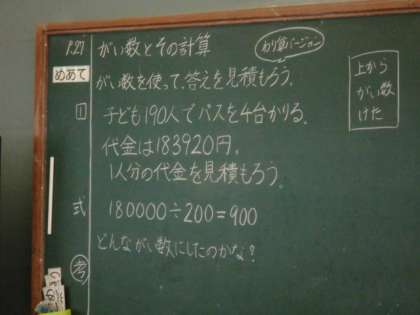 P.27 がい数とその計算 わり算バージョン
めあて がい数を使って、答えを見積もろう。
1 子ども190人でバスを4台かりる。
代金は183920円。
1人分の代金を見積もろう
式 180000÷200=900
どんながい数にしたのかな?
考
上から
がい数
けた